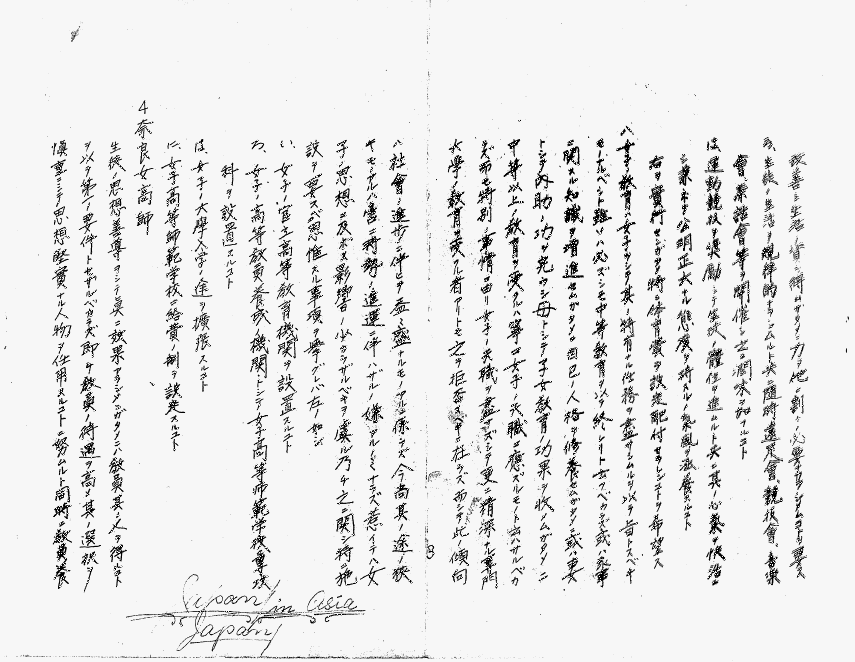 改善シ生活ノ合
ろ、生徒ノ生活ヲ規律的ナラシムルト共ニ随時遠足會、競技會、音樂
會、茶話會等ヲ開催シ之ニ潤味ヲ加フルコト
は、運動競技ヲ奨励シテ生徒ノ體位ヲ進ムルト共ニ其ノ心氣ヲ快活ニ
シ兼ネテ公明正大ナル態度ヲ持スルノ氣風ヲ涵養スルコト
右ヲ實行センガタメ特ニ体育費ヲ設定配付セラレンコトヲ希望ス
八、女子ノ教育ハ女子ヲシテ其ノ特有ナル性格ヲ盡サシムルヲ以テ旨トスベキ
モノナルベシト雖ソハ必ズシモ中等教育ヲ以テ終レリト云フベカラズ或ハ家事
ニ関スル知識ヲ増進セムガタメ自己ノ人格ヲ修養セムガタメ或ハ妻
トシテ内助ノ功ヲ完ウシ母トシテ子女教育ノ功果ヲ收メムガタメニ
中等以上ノ教育ヲ受クルハ等シク女子ノ天職ニ應ズルモノト云ハザルベカラ
ズ而モ特別ノ事情ニ由リ女子ノ天職ヲ盡サズシテ更ニ精深ナル専門
大學ノ教育ヲ受クル者アリトモ之ヲ拒否スベキニ在ラズ而シテ此ノ傾向
ハ社會ノ進歩ニ伴ヒテ益々盛ナルモノアルニ係ラズ今尚其ノ途ノ狹
キモノアルハ啻ニ時勢ノ進運ニ伴ハザルノ嫌アルノミナラズ惹イテハ女
子ノ思想ニ及ボス影響ノ少カラザルベキヲ慮ル乃チ之ニ関シ特ニ施
設ヲ要スベク思惟スル事項ヲ擧グレバ左ノ如シ
い、女子ノ官立高等教育機関ヲ設置スルコト
ろ、女子ノ高等教員養成ノ機関トシテ女子高等師範学校ニ専攻
科ヲ設置スルコト
は、女子ノ大學入学ノ途ヲ擴張スルコト
に、女子高等師範学校ニ給費ノ制ヲ設定スルコト
4 奈良女高師
生徒ノ思想善導ヲシテ眞ニ效果アラシメンガタメニハ教員其ノ人ヲ得ルコト
ヲ以テ第一要件トセザルベカラズ即チ教員ノ待遇ヲ高メ其ノ選択ヲ
慎重ニシテ思想堅實ナル人物ヲ任用スルコトニ努ムルト同時ニ教員養
3
Japan in Asia
Japan